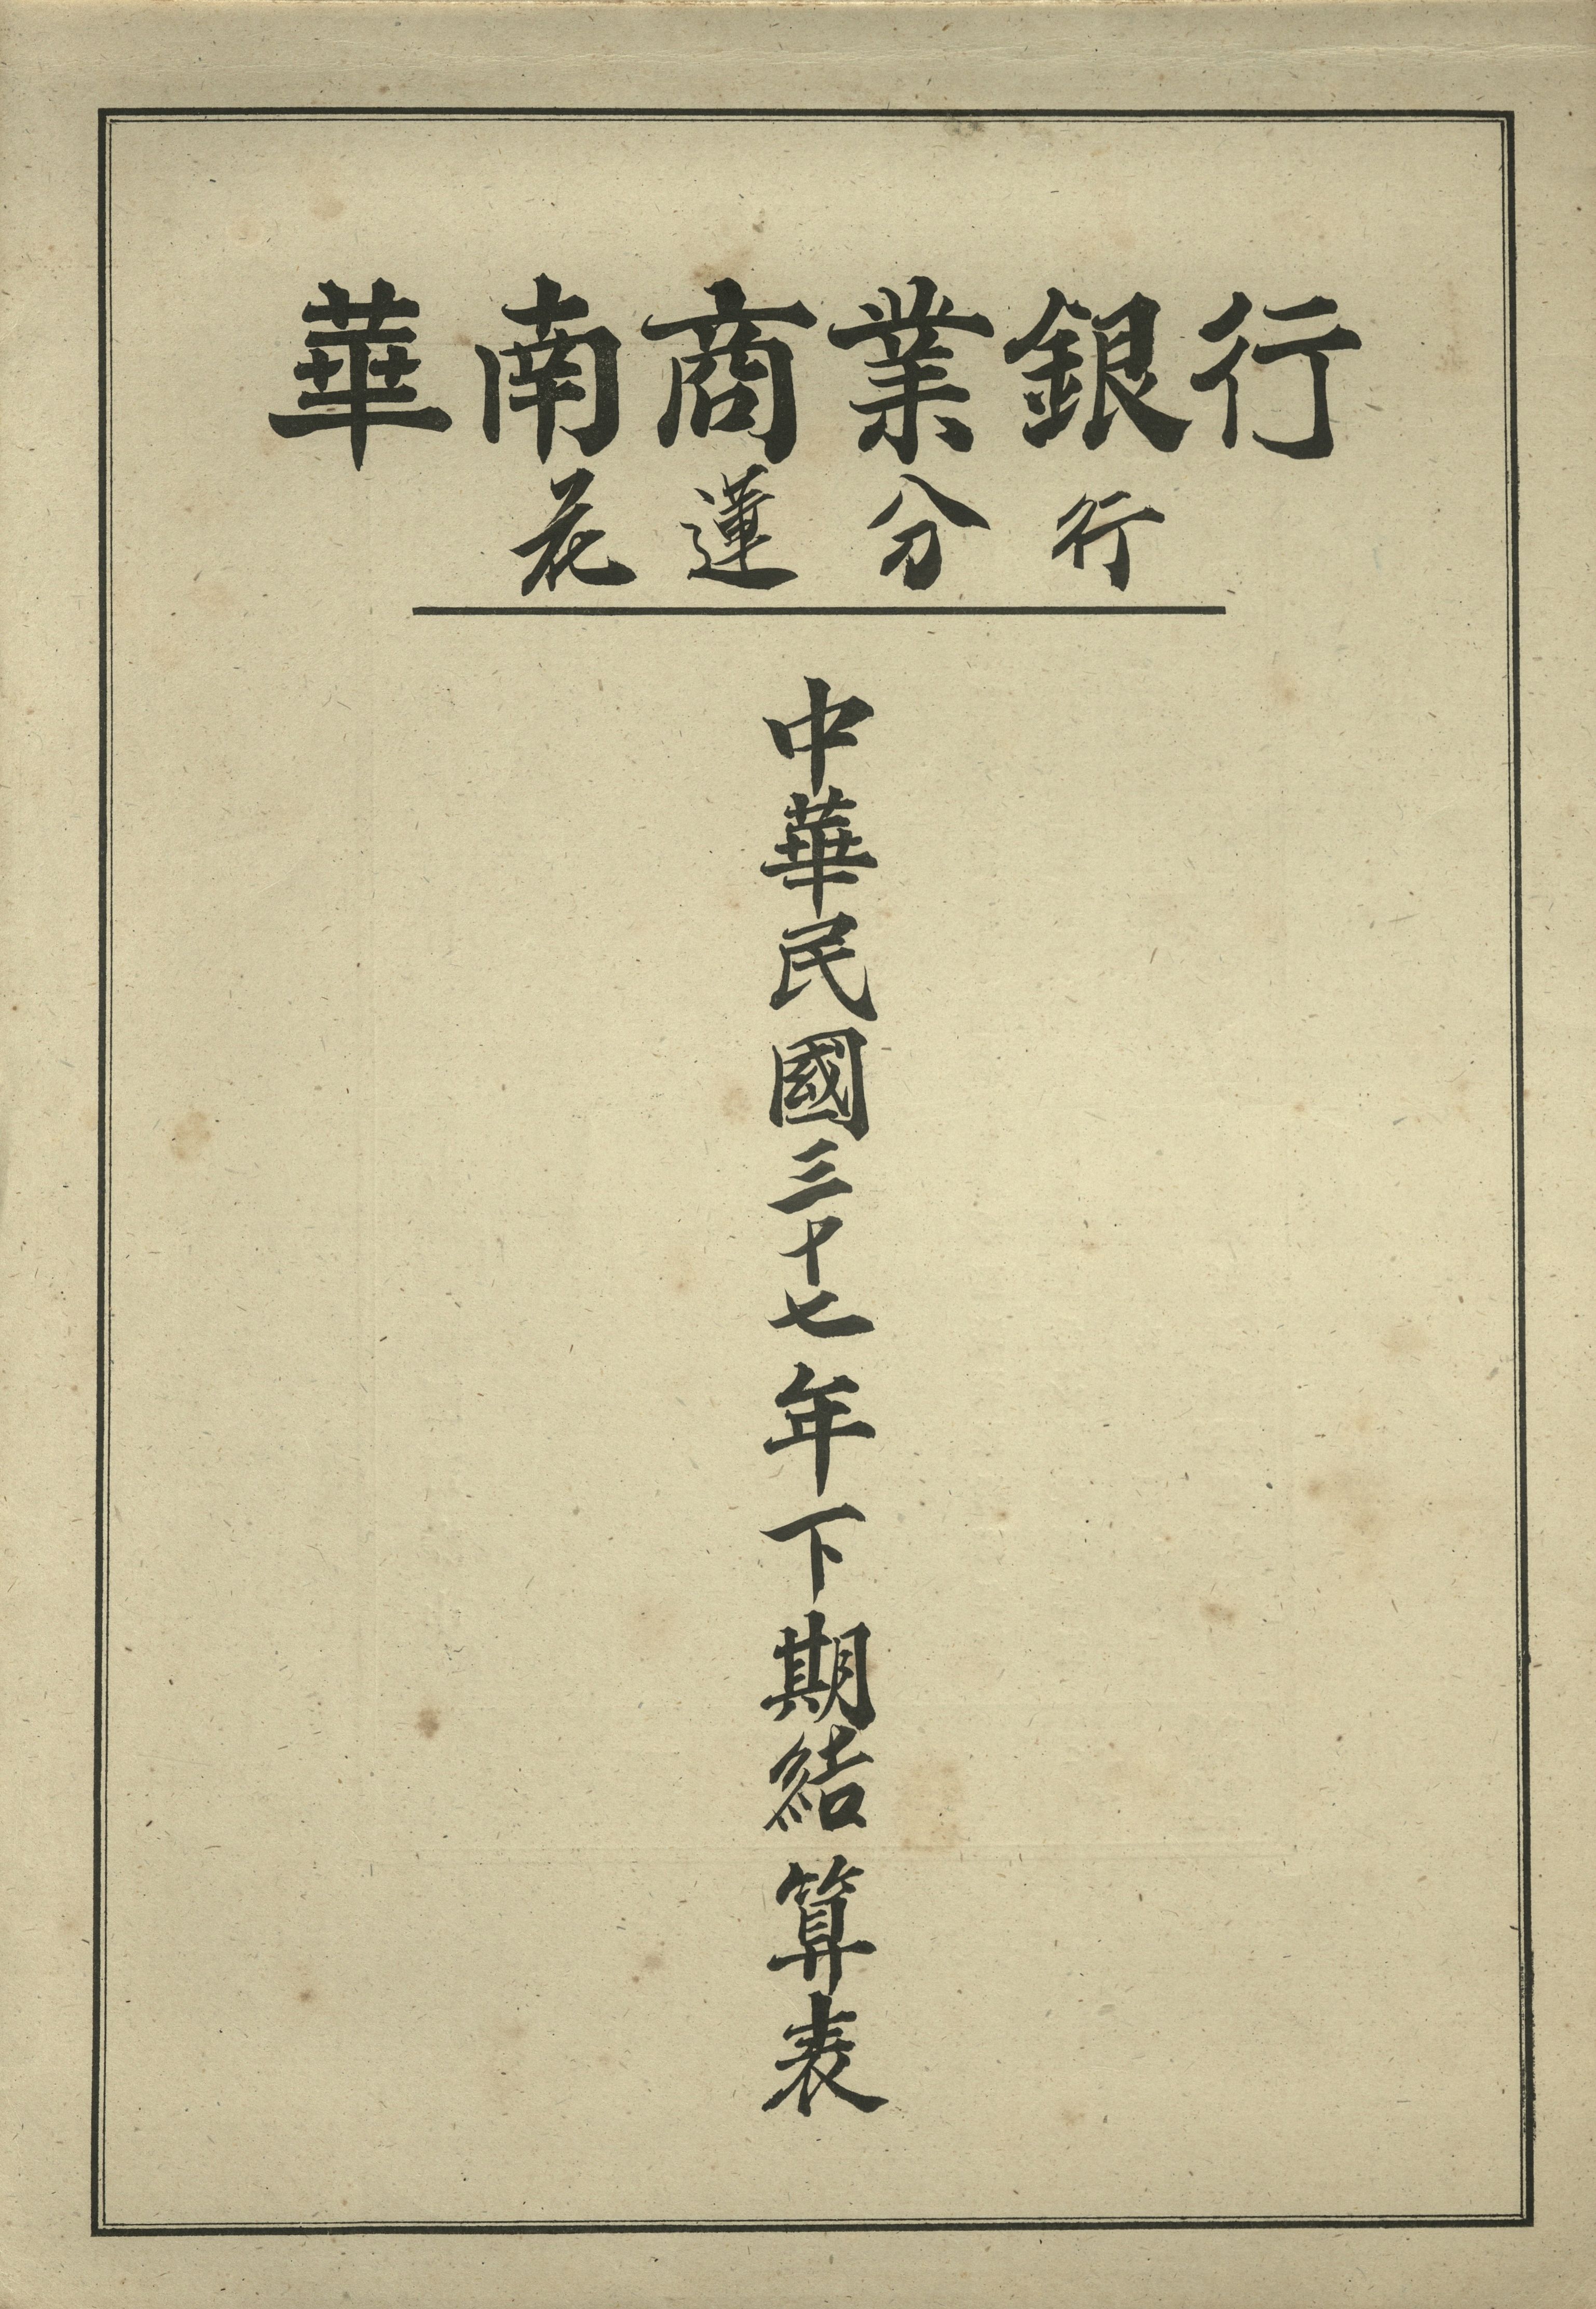 華南商業銀行
花蓮分行
中華民國三十七年下期結算表